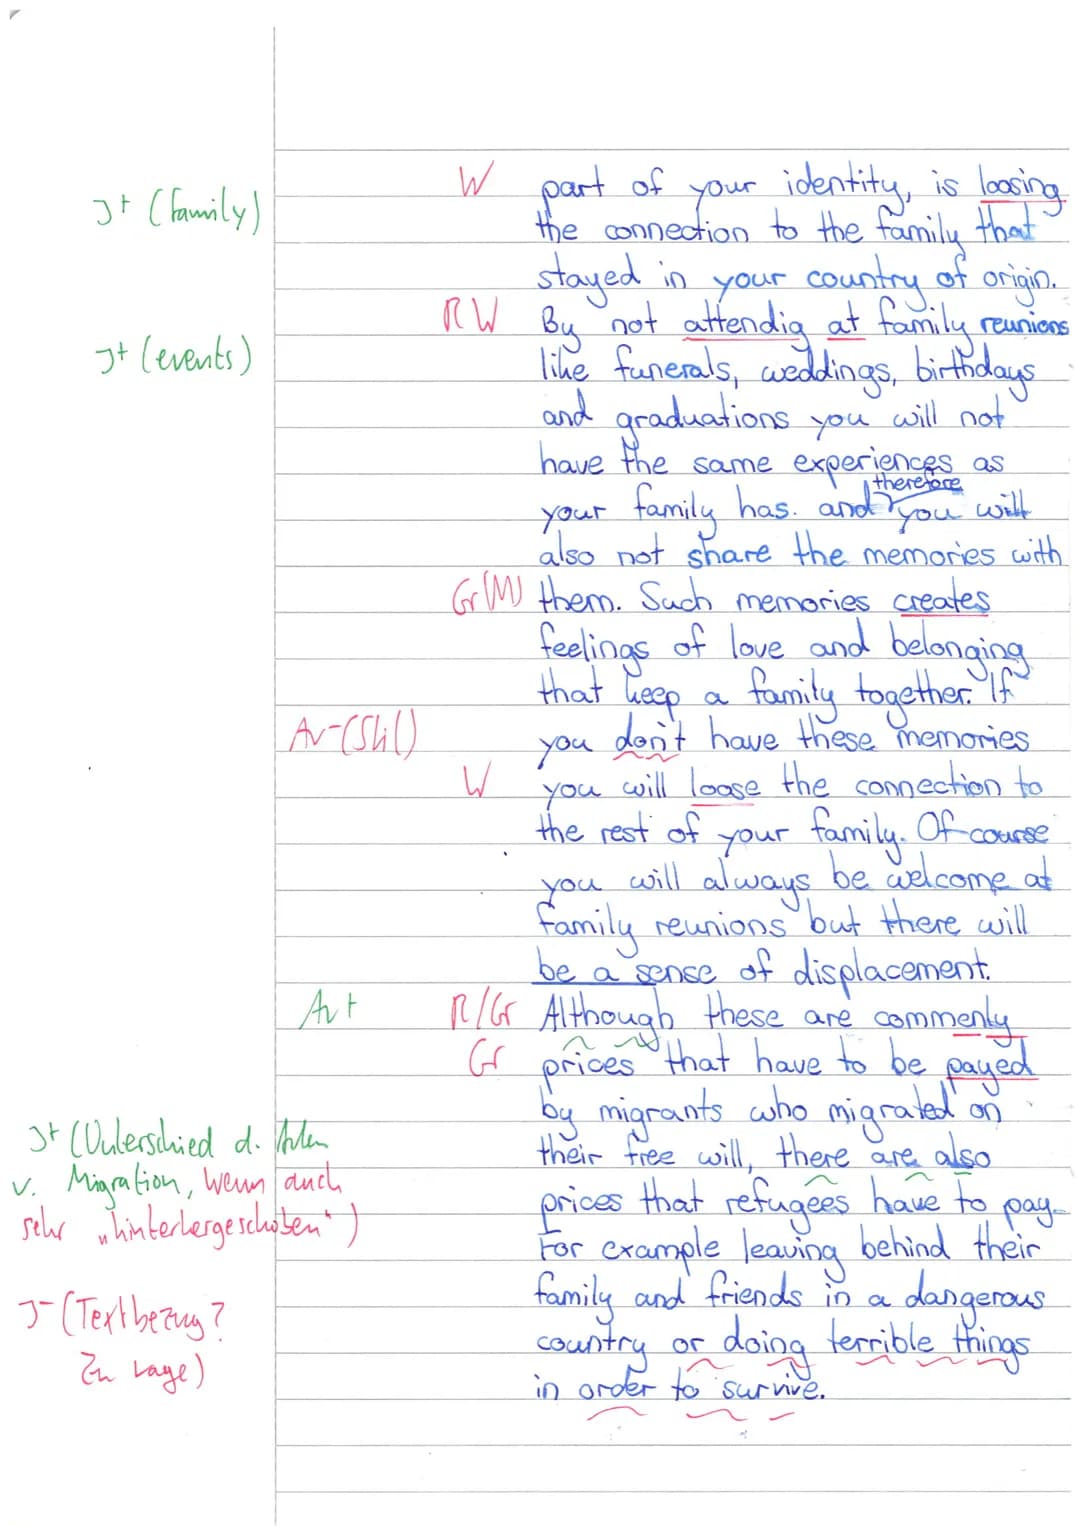 J+ (family)
W part of your identity, is loosing
the connection to the family that
stayed in your country of origin.
R W By not attendig at family reunions
J+ (events)
like funerals, weddings, birthdays
and graduations you will not
have the same experiences as
therefore
your family has. and you will
also not share the memories with
Gr(M) them. Such memories creates
feelings of love and belonging
that keep a family together. If
Av-(Stil) you don't have these memories
W you will loose the connection to
the rest of your family. Of course
you will always be welcome at
family reunions but there will
be a sense of displacement.
Av+ R/Gr Although these are commenly
Gr prices that have to be payed
by migrants who migrated on
J+ (Unterschied d. Arten
their free will, there are also
v. Migration, wenn auch
prices that refugees have to pay.
sehr „hinterhergeschoben")
For example leaving behind their
family and friends in a dangerous
J- (Textbezug?
country or doing terrible things
Zu vage)
in order to survive.